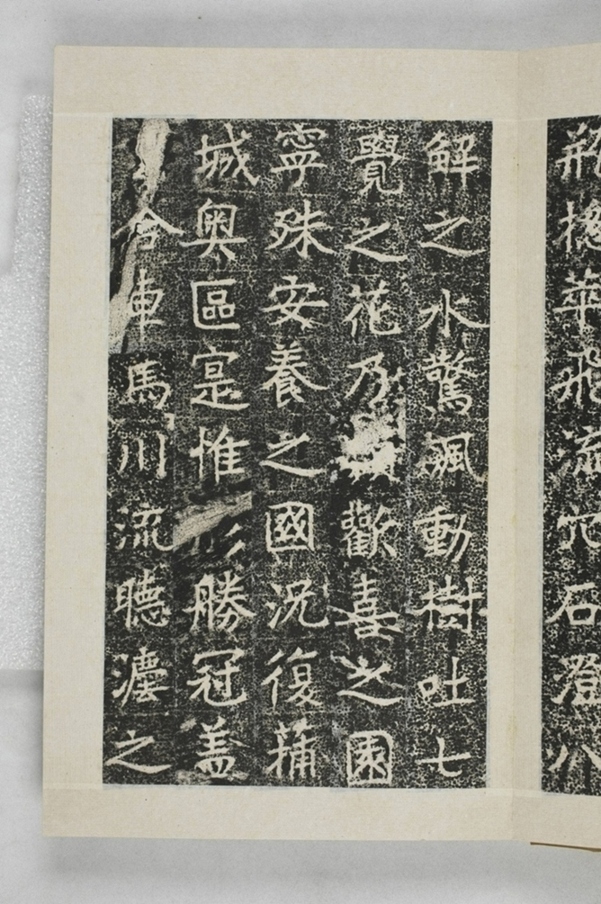 華飛流穴石澄八
解之水驚颯動樹吐七
覺之花乃歡喜之園
寧殊安養之國況復蒲
城奧區寔惟形勝冠盖
合車馬川流聽瀍之